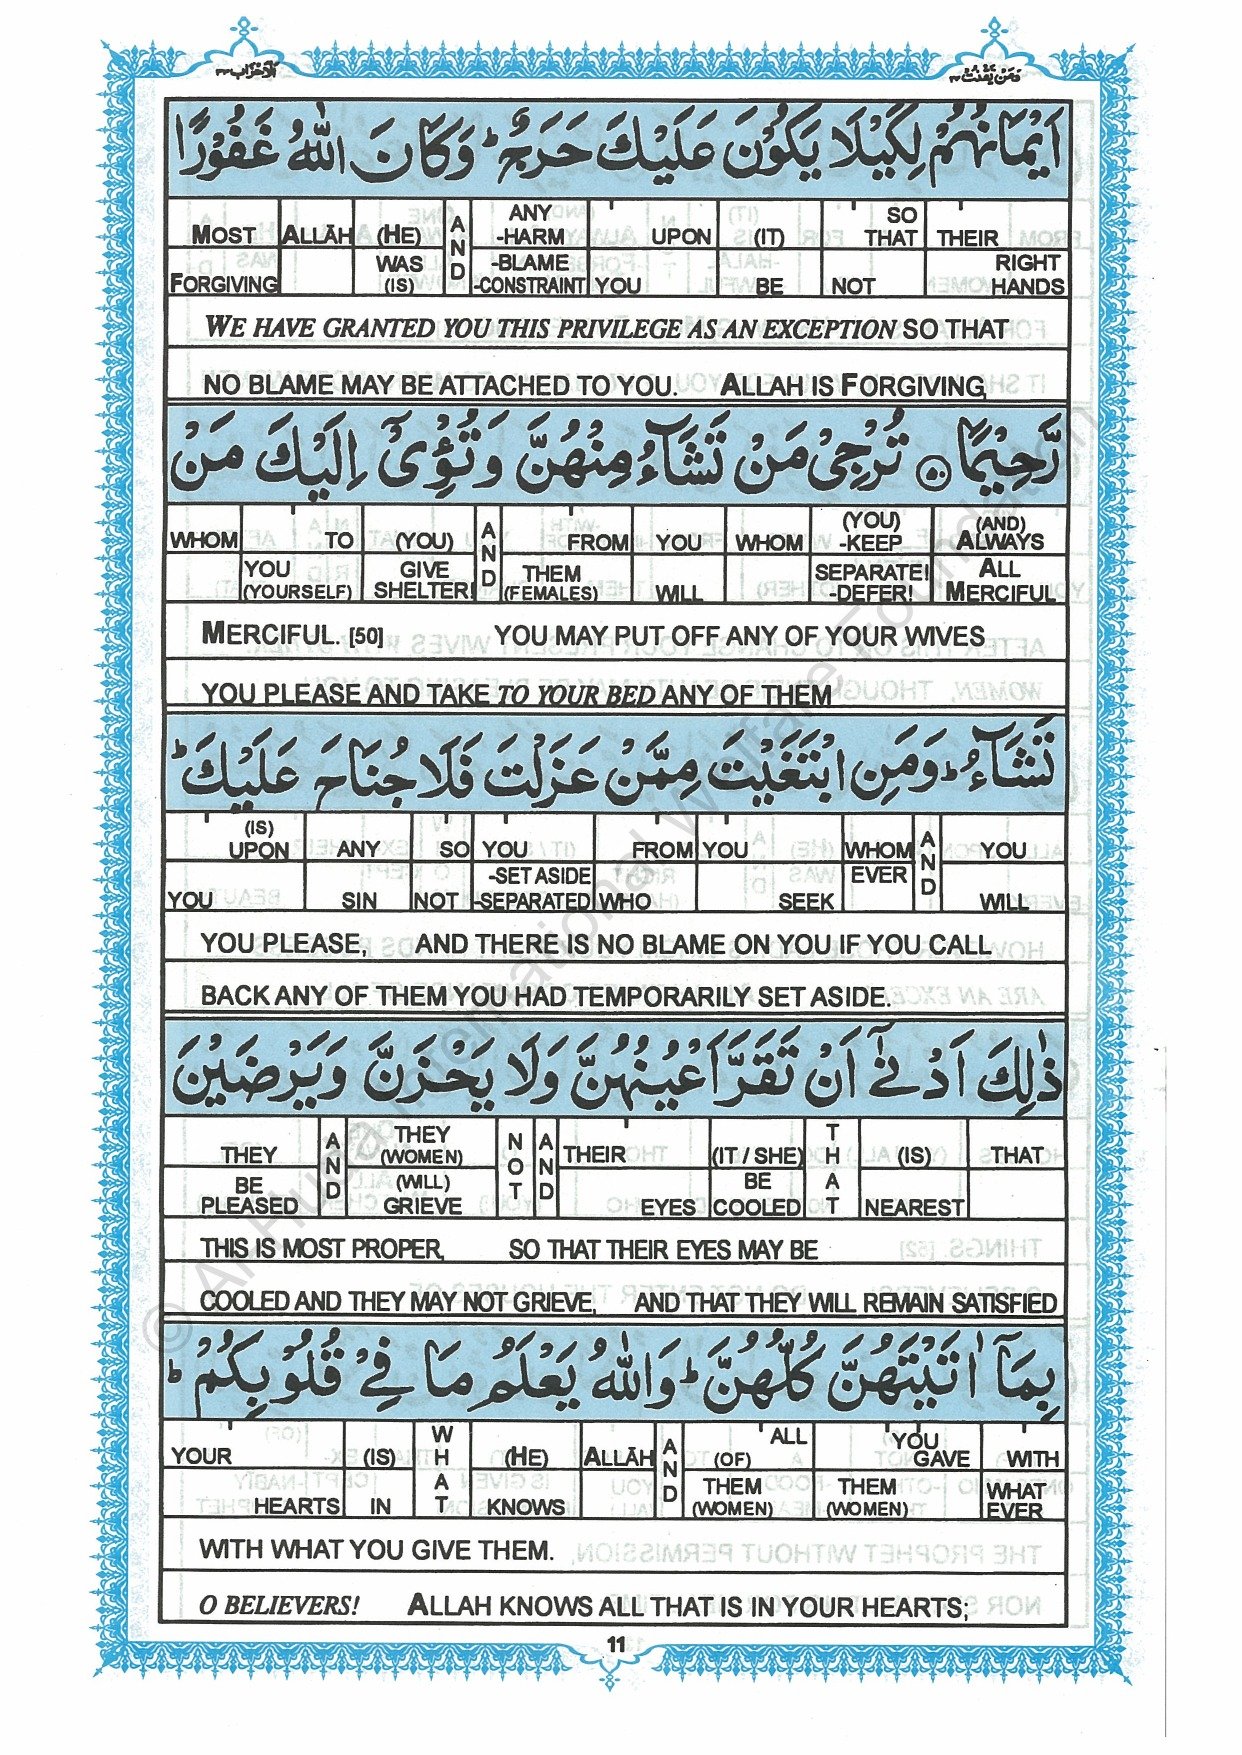 وَمَنْ يَّقْنُتْ ٢٢ الْاَحْزَاب ٣٣
اَيْمَانُهُمْ لِكَيْلَا يَكُوْنَ عَلَيْكَ حَرَجٌ ؕ وَكَانَ اللّٰهُ غَفُوْرًا
MOST ALLĀH (HE) AND ANY -HARM UPON (IT) SO THAT THEIR
FORGIVING WAS (IS) -BLAME -CONSTRAINT YOU BE NOT RIGHT HANDS
WE HAVE GRANTED YOU THIS PRIVILEGE AS AN EXCEPTION SO THAT
NO BLAME MAY BE ATTACHED TO YOU. ALLAH IS FORGIVING,
رَّحِيْمًا ۝٥٠ تُرْجِيْ مَنْ تَشَآءُ مِنْهُنَّ وَتُؤْيْٓ اِلَيْكَ مَنْ
WHOM TO (YOU) AND FROM YOU WHOM (YOU) -KEEP (AND) ALWAYS
YOU (YOURSELF) GIVE SHELTER! THEM (FEMALES) WILL SEPARATE! -DEFER! ALL MERCIFUL
MERCIFUL. [50] YOU MAY PUT OFF ANY OF YOUR WIVES
YOU PLEASE AND TAKE TO YOUR BED ANY OF THEM
تَشَآءُ ؕ وَمَنِ ابْتَغَيْتَ مِمَّنْ عَزَلْتَ فَلَا جُنَاحَ عَلَيْكَ ؕ
(IS) UPON ANY SO YOU FROM YOU WHOM AND YOU
YOU SIN NOT -SET ASIDE -SEPARATED WHO SEEK EVER WILL
YOU PLEASE, AND THERE IS NO BLAME ON YOU IF YOU CALL
BACK ANY OF THEM YOU HAD TEMPORARILY SET ASIDE.
ذٰلِكَ اَدْنٰٓى اَنْ تَقَرَّ اَعْيُنُهُنَّ وَلَا يَحْزَنَّ وَيَرْضَيْنَ
THEY AND THEY (WOMEN) NOT AND THEIR (IT / SHE) THAT (IS) THAT
BE PLEASED (WILL) GRIEVE EYES BE COOLED NEAREST
THIS IS MOST PROPER, SO THAT THEIR EYES MAY BE
COOLED AND THEY MAY NOT GRIEVE, AND THAT THEY WILL REMAIN SATISFIED
بِمَآ اٰتَيْتَهُنَّ كُلُّهُنَّ ؕ وَاللّٰهُ يَعْلَمُ مَا فِيْ قُلُوْبِكُمْ ؕ
YOUR (IS) WHAT (HE) ALLĀH AND ALL (OF) YOU GAVE WITH
HEARTS IN KNOWS THEM (WOMEN) THEM (WOMEN) WHAT EVER
WITH WHAT YOU GIVE THEM.
O BELIEVERS! ALLAH KNOWS ALL THAT IS IN YOUR HEARTS;
11
© Al-Huda International Welfare Foundation